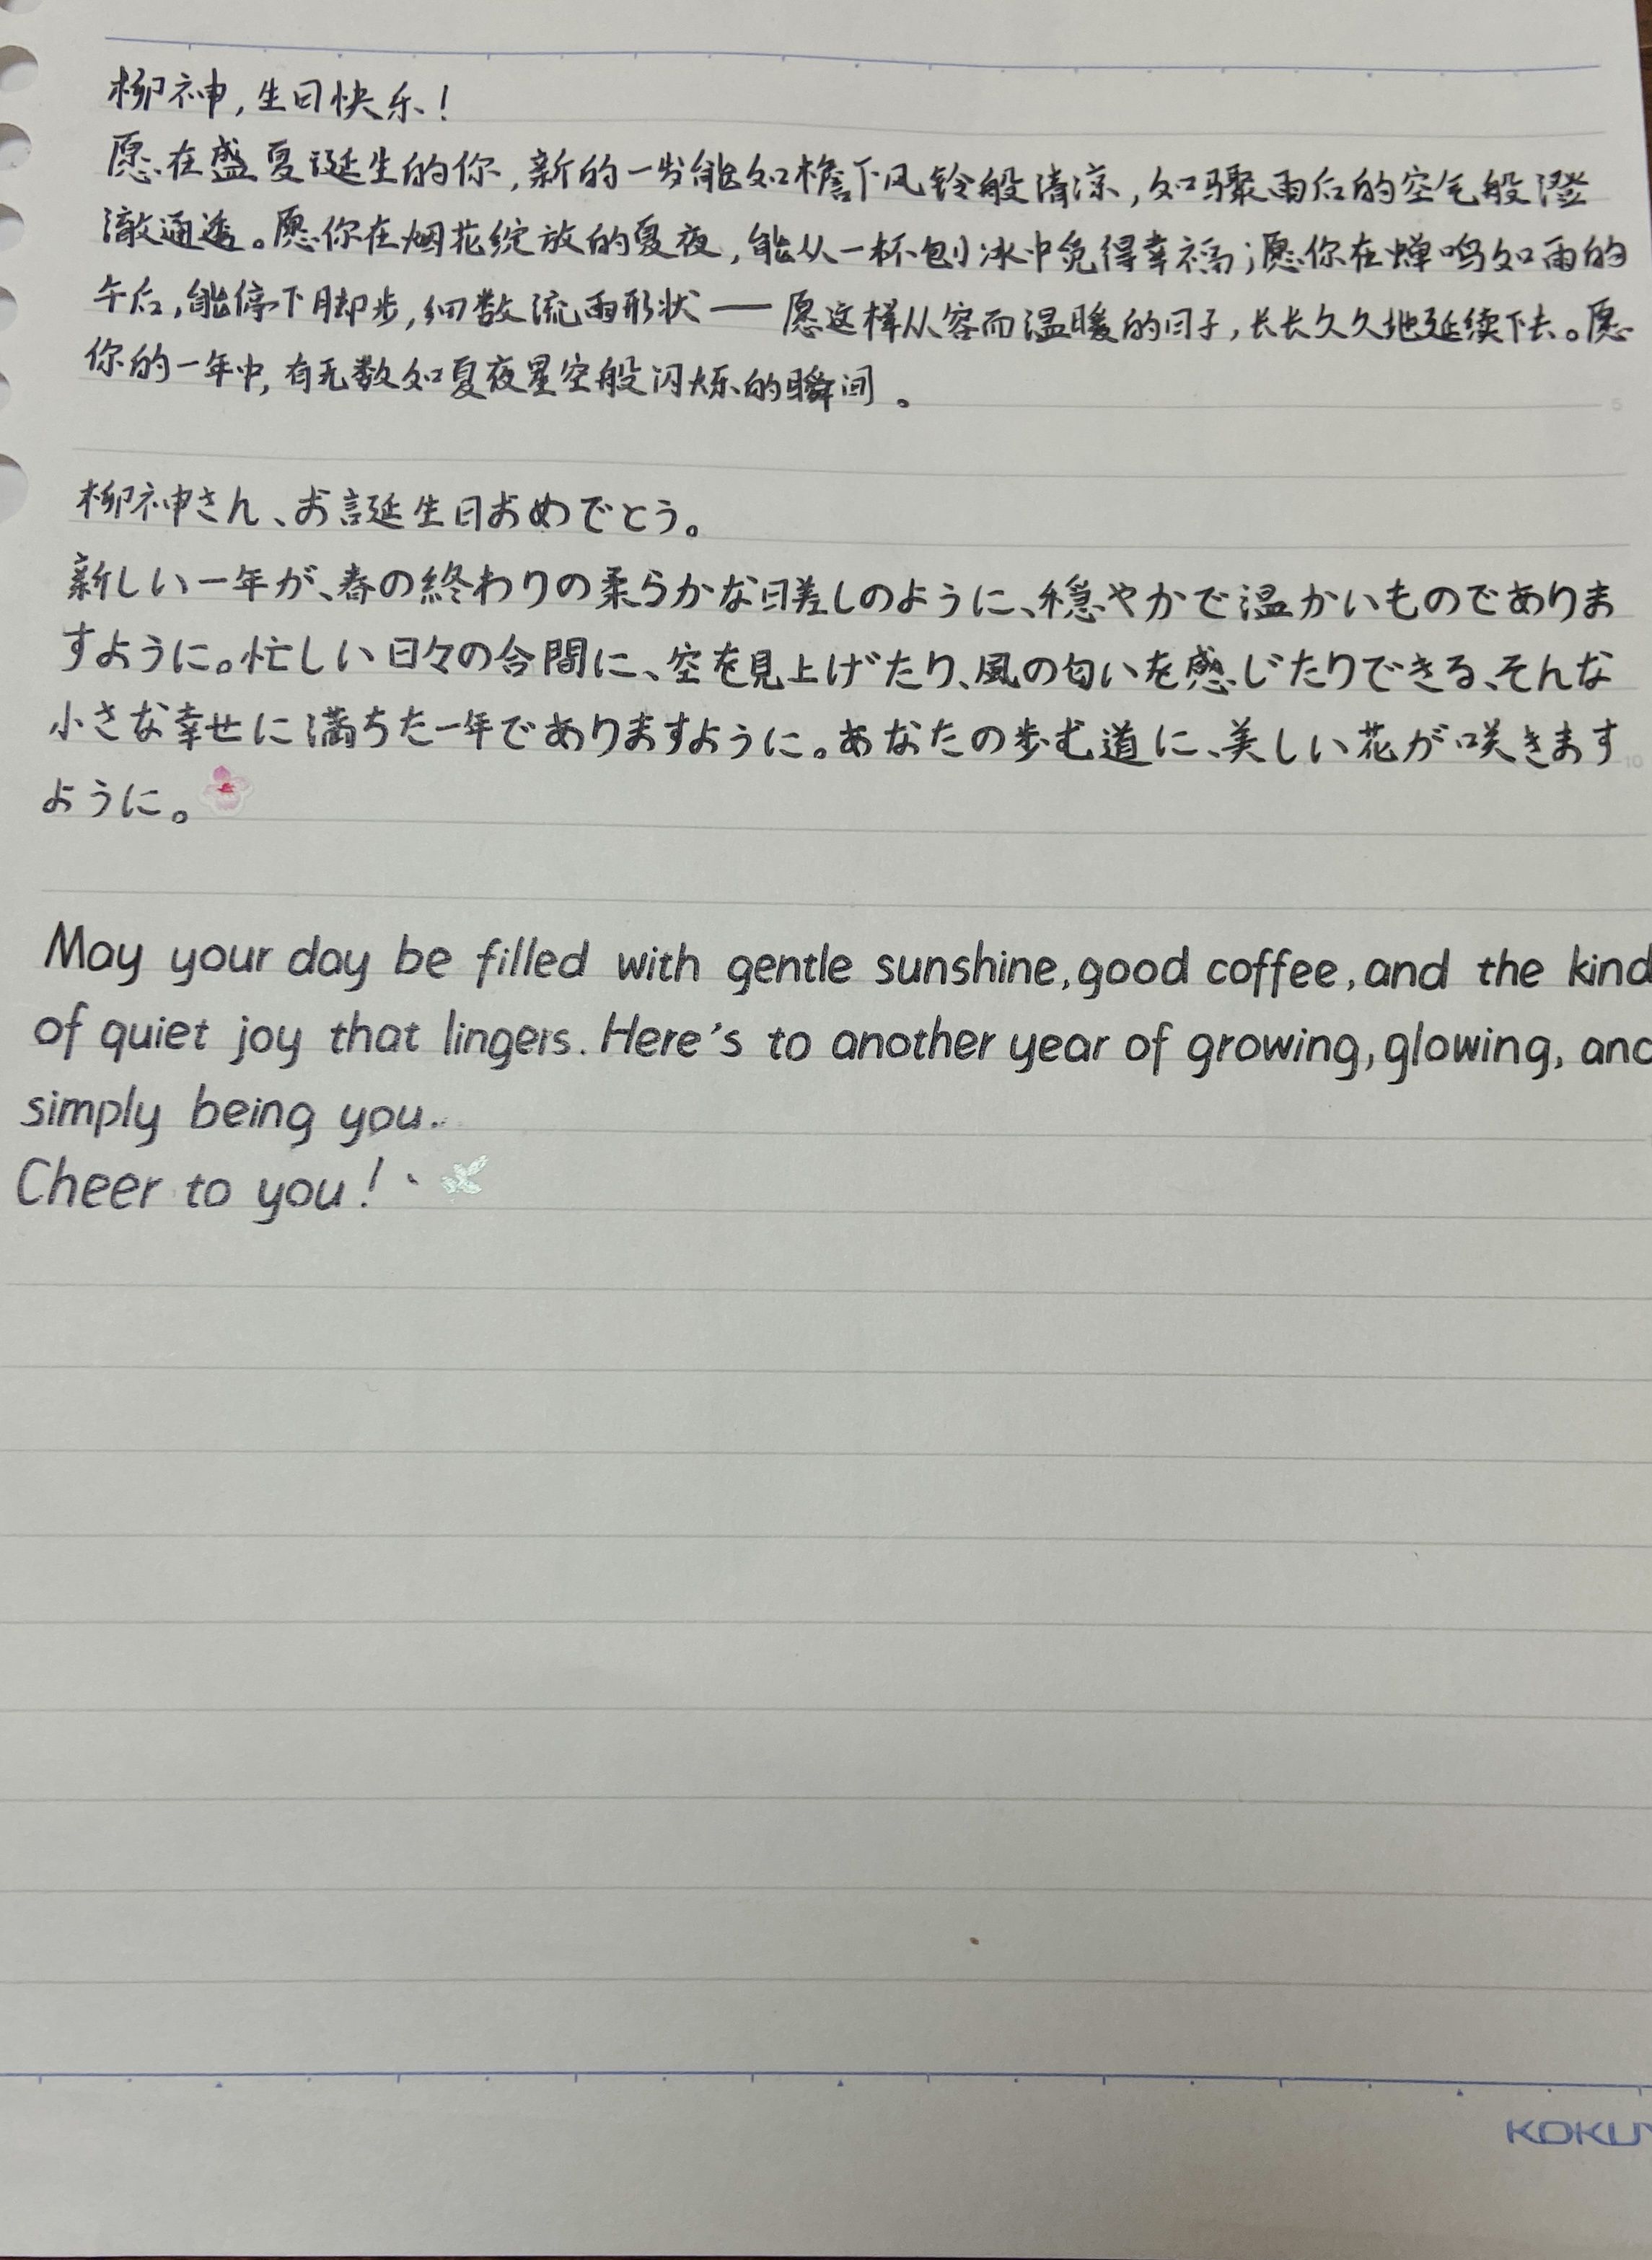 柳神,生日快乐!
愿在盛夏诞生的你,新的一岁能如檐下风铃般清凉,如骤雨后的空气般澄
澈通透。愿你在烟花绽放的夏夜,能从一杯刨冰中觅得幸福;愿你在蝉鸣如雨的
午后,能停下脚步,细数流雨形状——愿这样从容而温暖的日子,长长久久地延续下去。愿
你的一年中,有无数如夏夜星空般闪烁的瞬间。
柳神さん、お誕生日おめでとう。
新しい一年が、春の終わりの柔らかな日差しのように、穏やかで温かいものでありま
すように。忙しい日々の合間に、空を見上げたり、風の匂いを感じたりできる、そんな
小さな幸せに満ちた一年でありますように。あなたの歩む道に、美しい花が咲きます
ように。
May your day be filled with gentle sunshine, good coffee, and the kind
of quiet joy that lingers. Here's to another year of growing, glowing, and
simply being you.
Cheer to you!
KOKUY